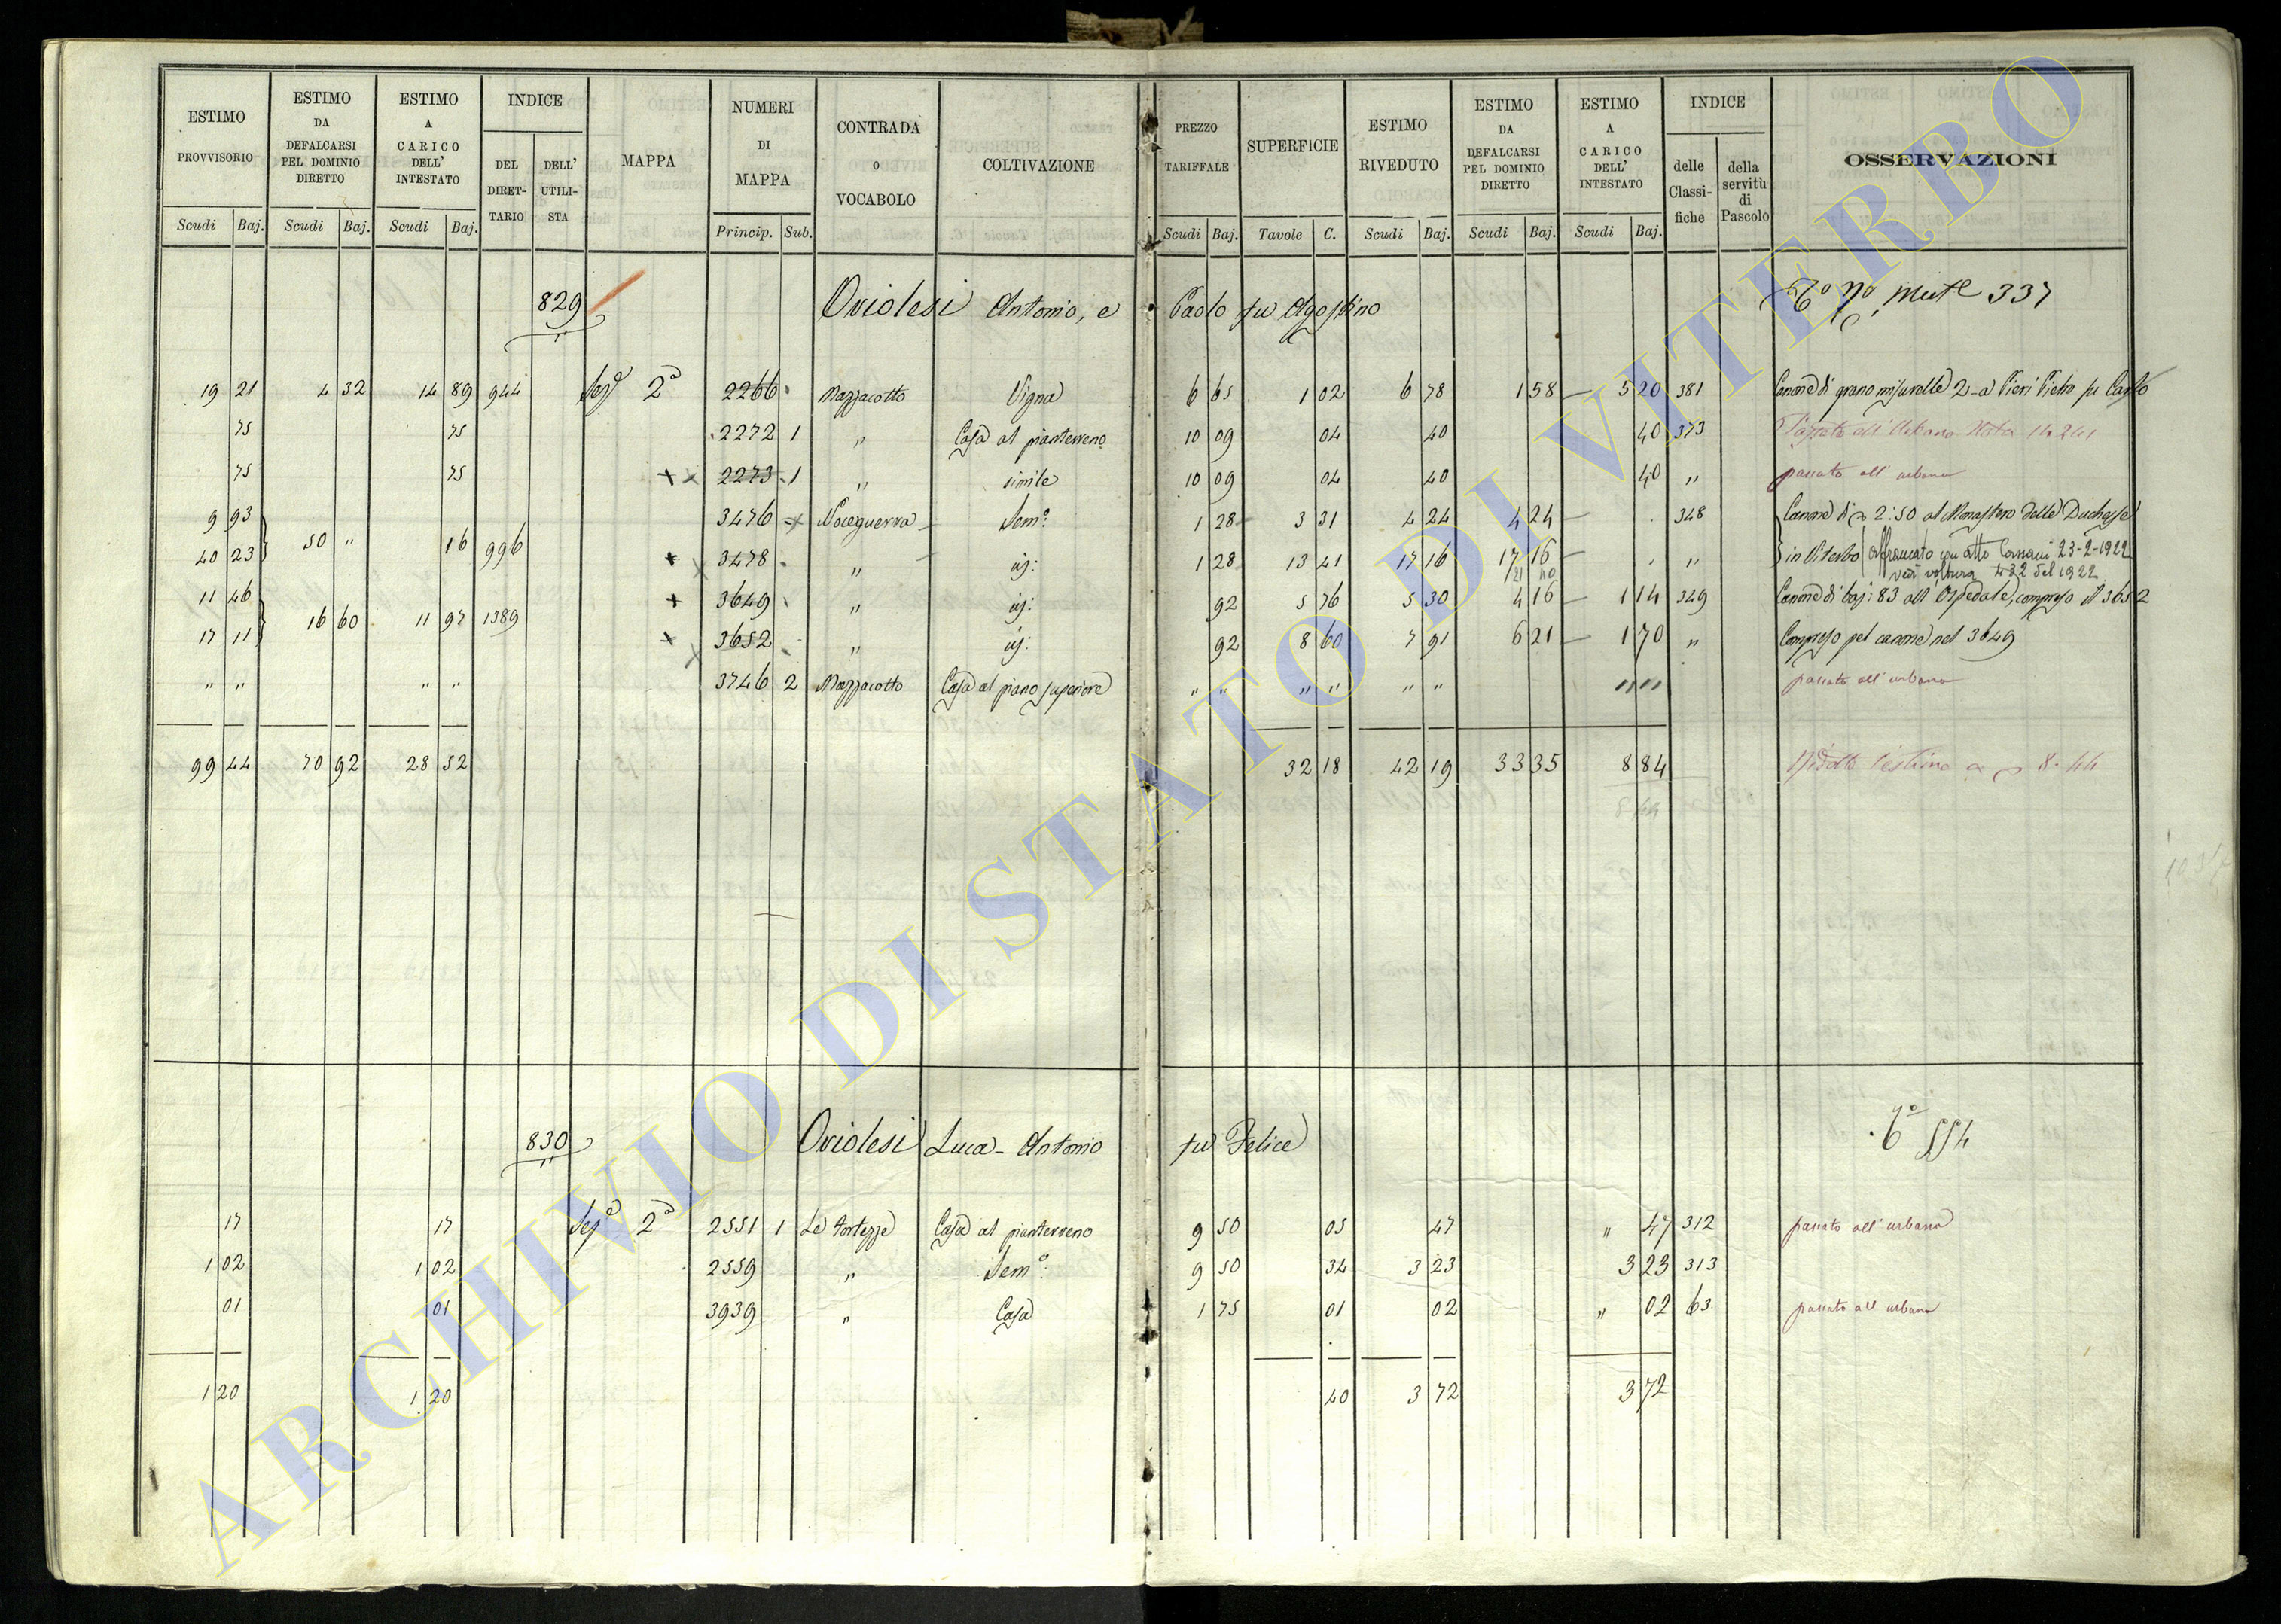 ESTIMO PROVVISORIO
Scudi Baj.
ESTIMO DA DEFALCARSI PEL DOMINIO DIRETTO
Scudi Baj.
ESTIMO A CARICO DELL' INTESTATO
Scudi Baj.
INDICE
DEL DIRET-TARIO
DELL' UTILI-STA
MAPPA
NUMERI DI MAPPA
Princip. Sub.
CONTRADA o VOCABOLO
COLTIVAZIONE
PREZZO TARIFFALE
Scudi Baj.
SUPERFICIE
Tavole C.
ESTIMO RIVEDUTO
Scudi Baj.
ESTIMO DA DEFALCARSI PEL DOMINIO DIRETTO
Scudi Baj.
ESTIMO A CARICO DELL' INTESTATO
Scudi Baj.
INDICE
delle Classi-fiche
della servitù di Pascolo
OSSERVAZIONI
829 Oriolesi Antonio, e Paolo fu Agostino 337
19 21 4 32 14 89 944 Sez.e 2a 2266 Mazzacotto Vigna 6 65 1 02 6 78 1 58 5 20 381 Canone di grano misurelle 2 a Pieri Pietro fu Carlo
75 75 2272 1 " Casa al pianterreno 10 09 04 40 40 373 Passato all' Urbano
75 75 2273 1 " simile 10 09 04 40 40 " passato all' urbano
9 93 3476 Noceguerra Sem.o 1 28 3 31 4 24 4 24 . 348 Canone di 2:50 al Monastero delle Duchesse
40 23 50 " 16 996 3478 " id: 1 28 13 41 17 16 17 16 . " in Viterbo affrancato con atto 23-2-1922
vedi voltura 432 del 1922
11 46 3649 " id: 92 5 76 5 30 4 16 1 14 349 Canone di baj: 83 all' Ospedale, compreso il 3652
17 11 16 60 11 97 1389 3652 " id: 92 8 60 7 91 6 21 1 70 " Compreso pel canone nel 3649
" " " " 3746 2 Mazzacotto Casa al piano superiore " " " " " " " " passato all' urbano
99 44 70 92 28 52 32 18 42 19 33 35 8 84 Ridotto l'estimo a 8.44
830 Oriolesi Luca-Antonio fu Felice 554
17 17 Sez.e 2a 2551 1 Le Fortezze Casa al pianterreno 9 50 05 47 " 47 312 passato all' urbano
1 02 1 02 2559 " Sem.o 9 50 34 3 23 3 23 313
01 01 3939 " Casa 1 75 01 02 " 02 63 passato all' urbano
1 20 1 20 40 3 72 3 72
ARCHIVIO DI STATO DI VITERBO